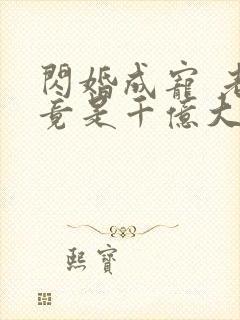 閃婚成寵 老
竟是千億大
熙寶